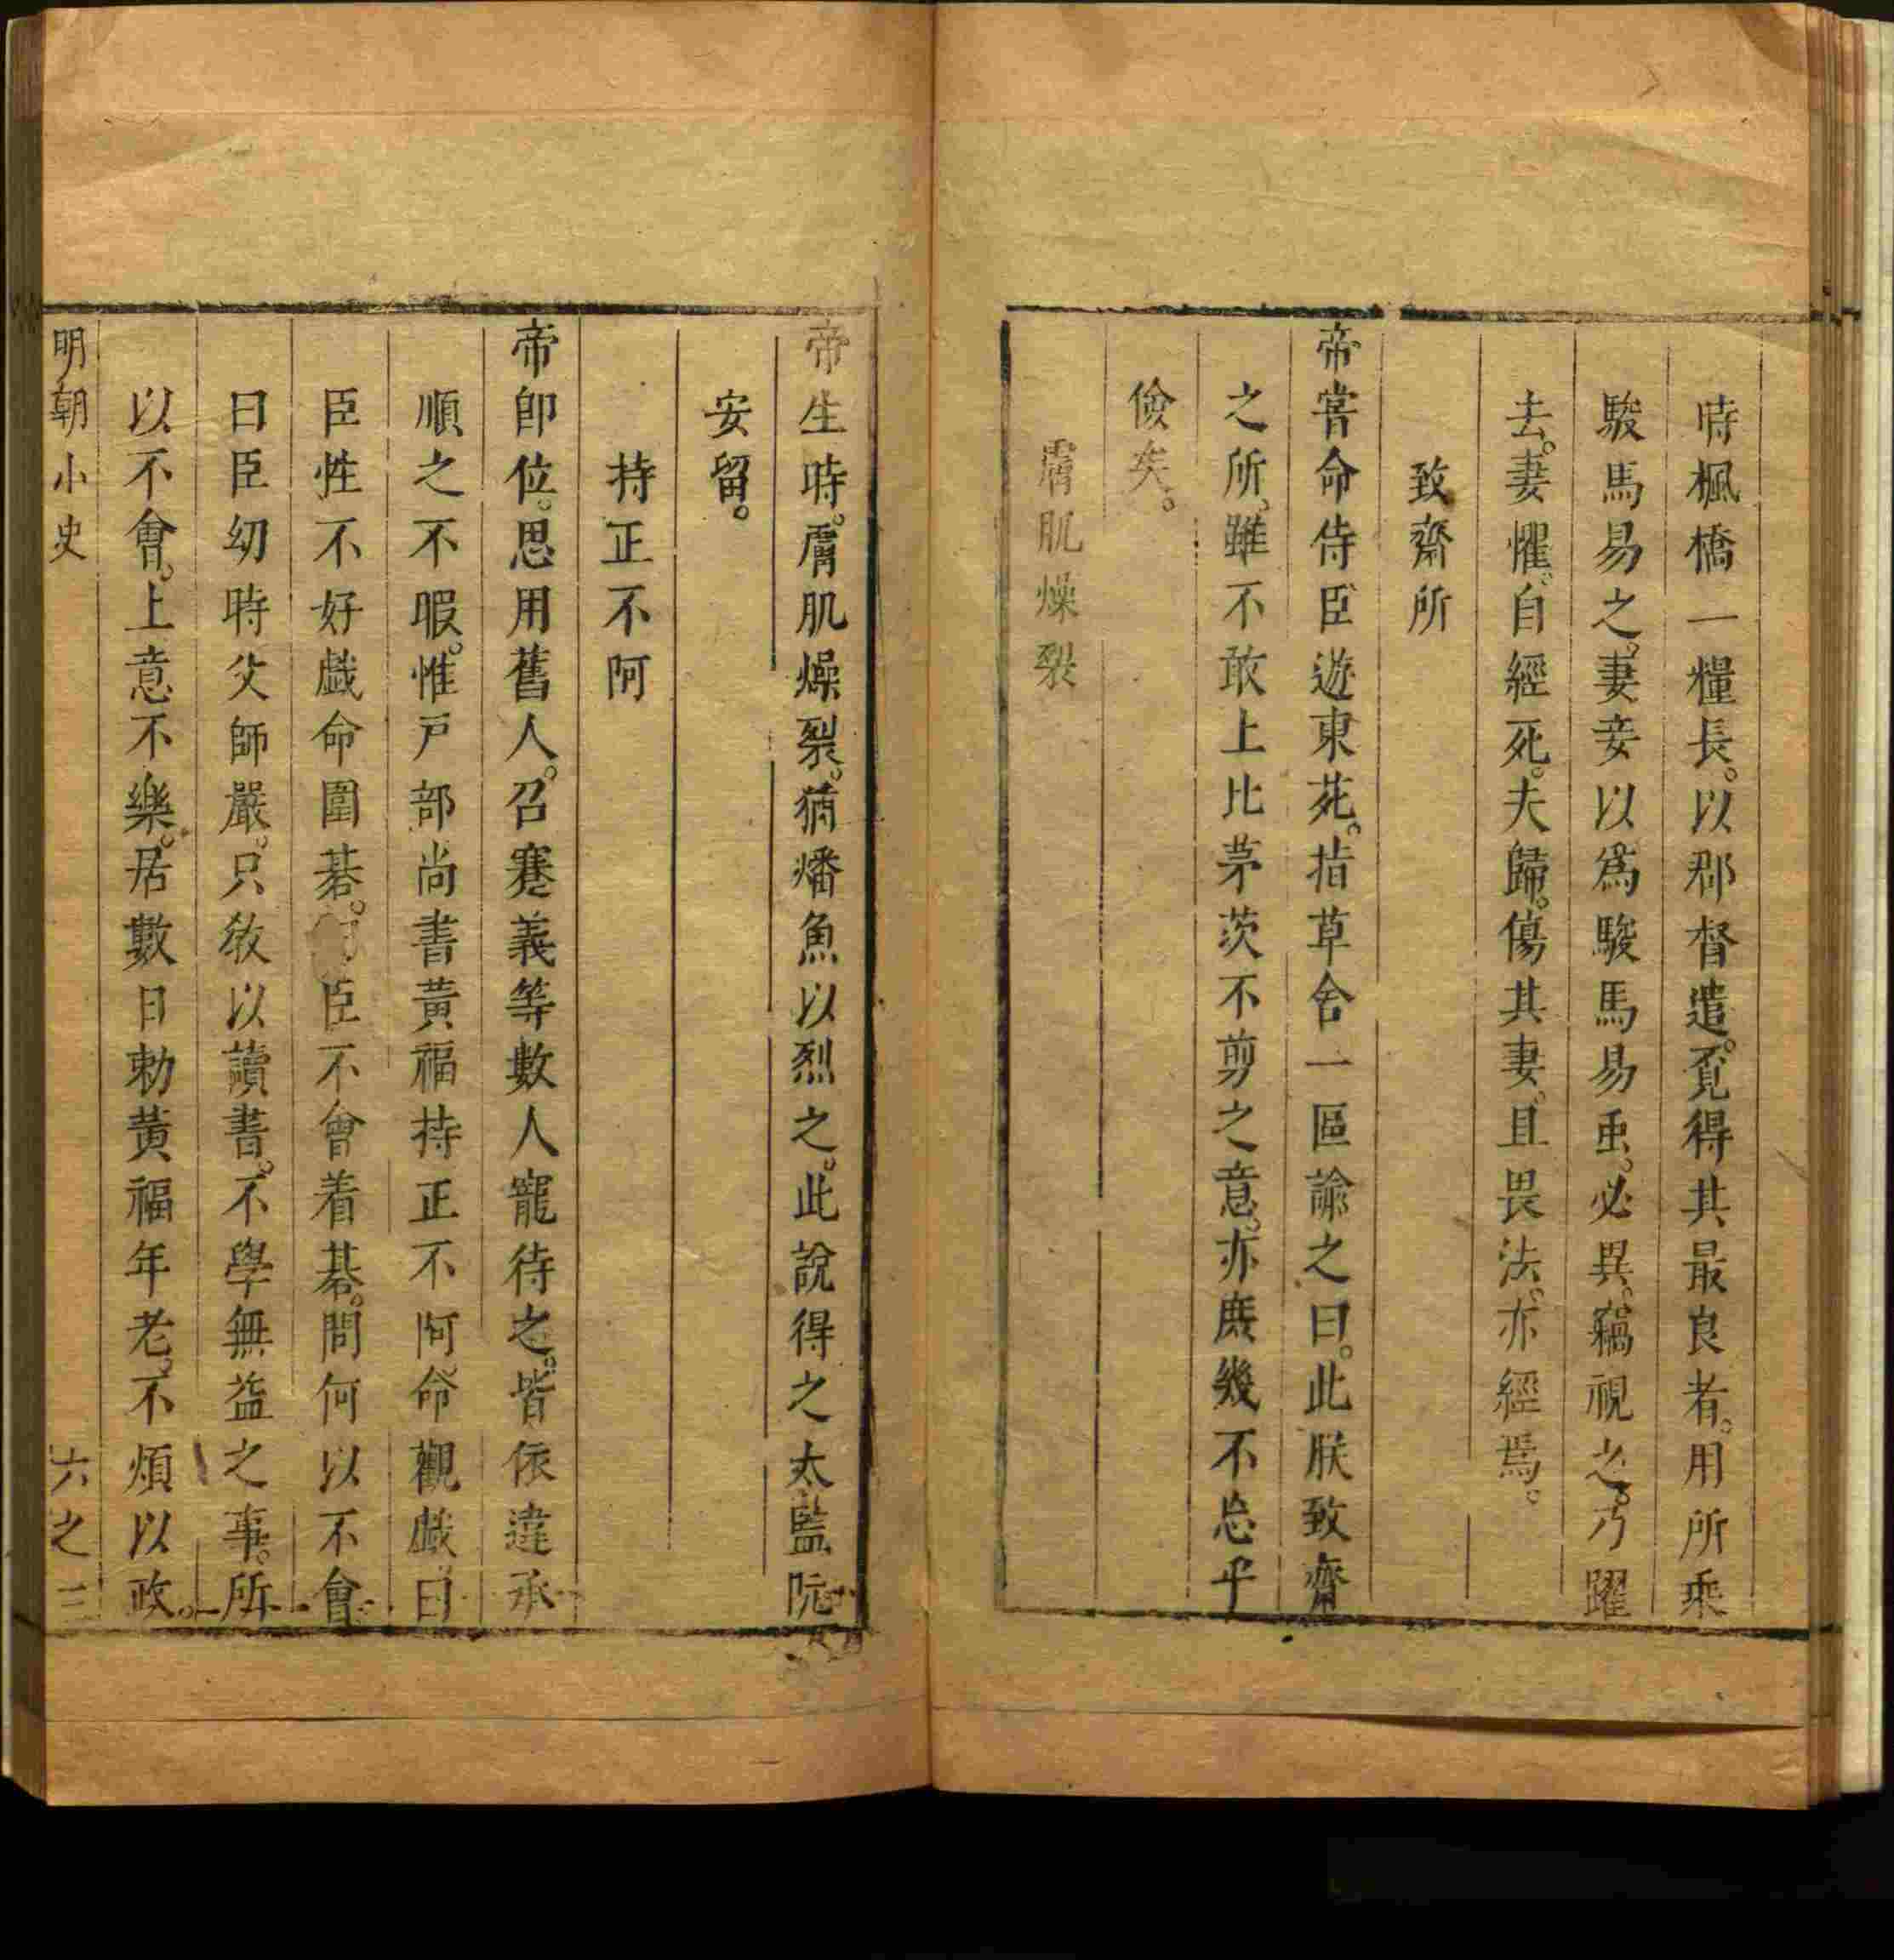 時楓橋一糧長。以郡督遣。覔得其最良者。用所乘
駿馬易之。妻妾以為駿馬易虫。必異。竊視之。乃躍
去。妻懼。自經死。夫歸。傷其妻。且畏法。亦經焉。
致齋所
帝嘗命侍臣遊東苑。指草舍一區諭之曰。此朕致齋
之所。雖不敢上比茅茨不剪之意。亦庻幾不忘乎
儉矣。
膚肌燥裂
帝生時。膚肌燥裂。猶燔魚以烈之。此說得之太監阮
安留。
持正不阿
帝即位。思用舊人。召蹇義等數人寵待之。皆依違承
順之不暇。惟戸部尚書黃福持正不阿命觀戯。曰
臣性不好戯命圍碁。臣不會着碁。問何以不會
曰臣幼時父師嚴。只教以讀書。不學無益之事。所
以不會。上意不樂。居數日勅黃福年老。不煩以政。
明朝小史
六之三